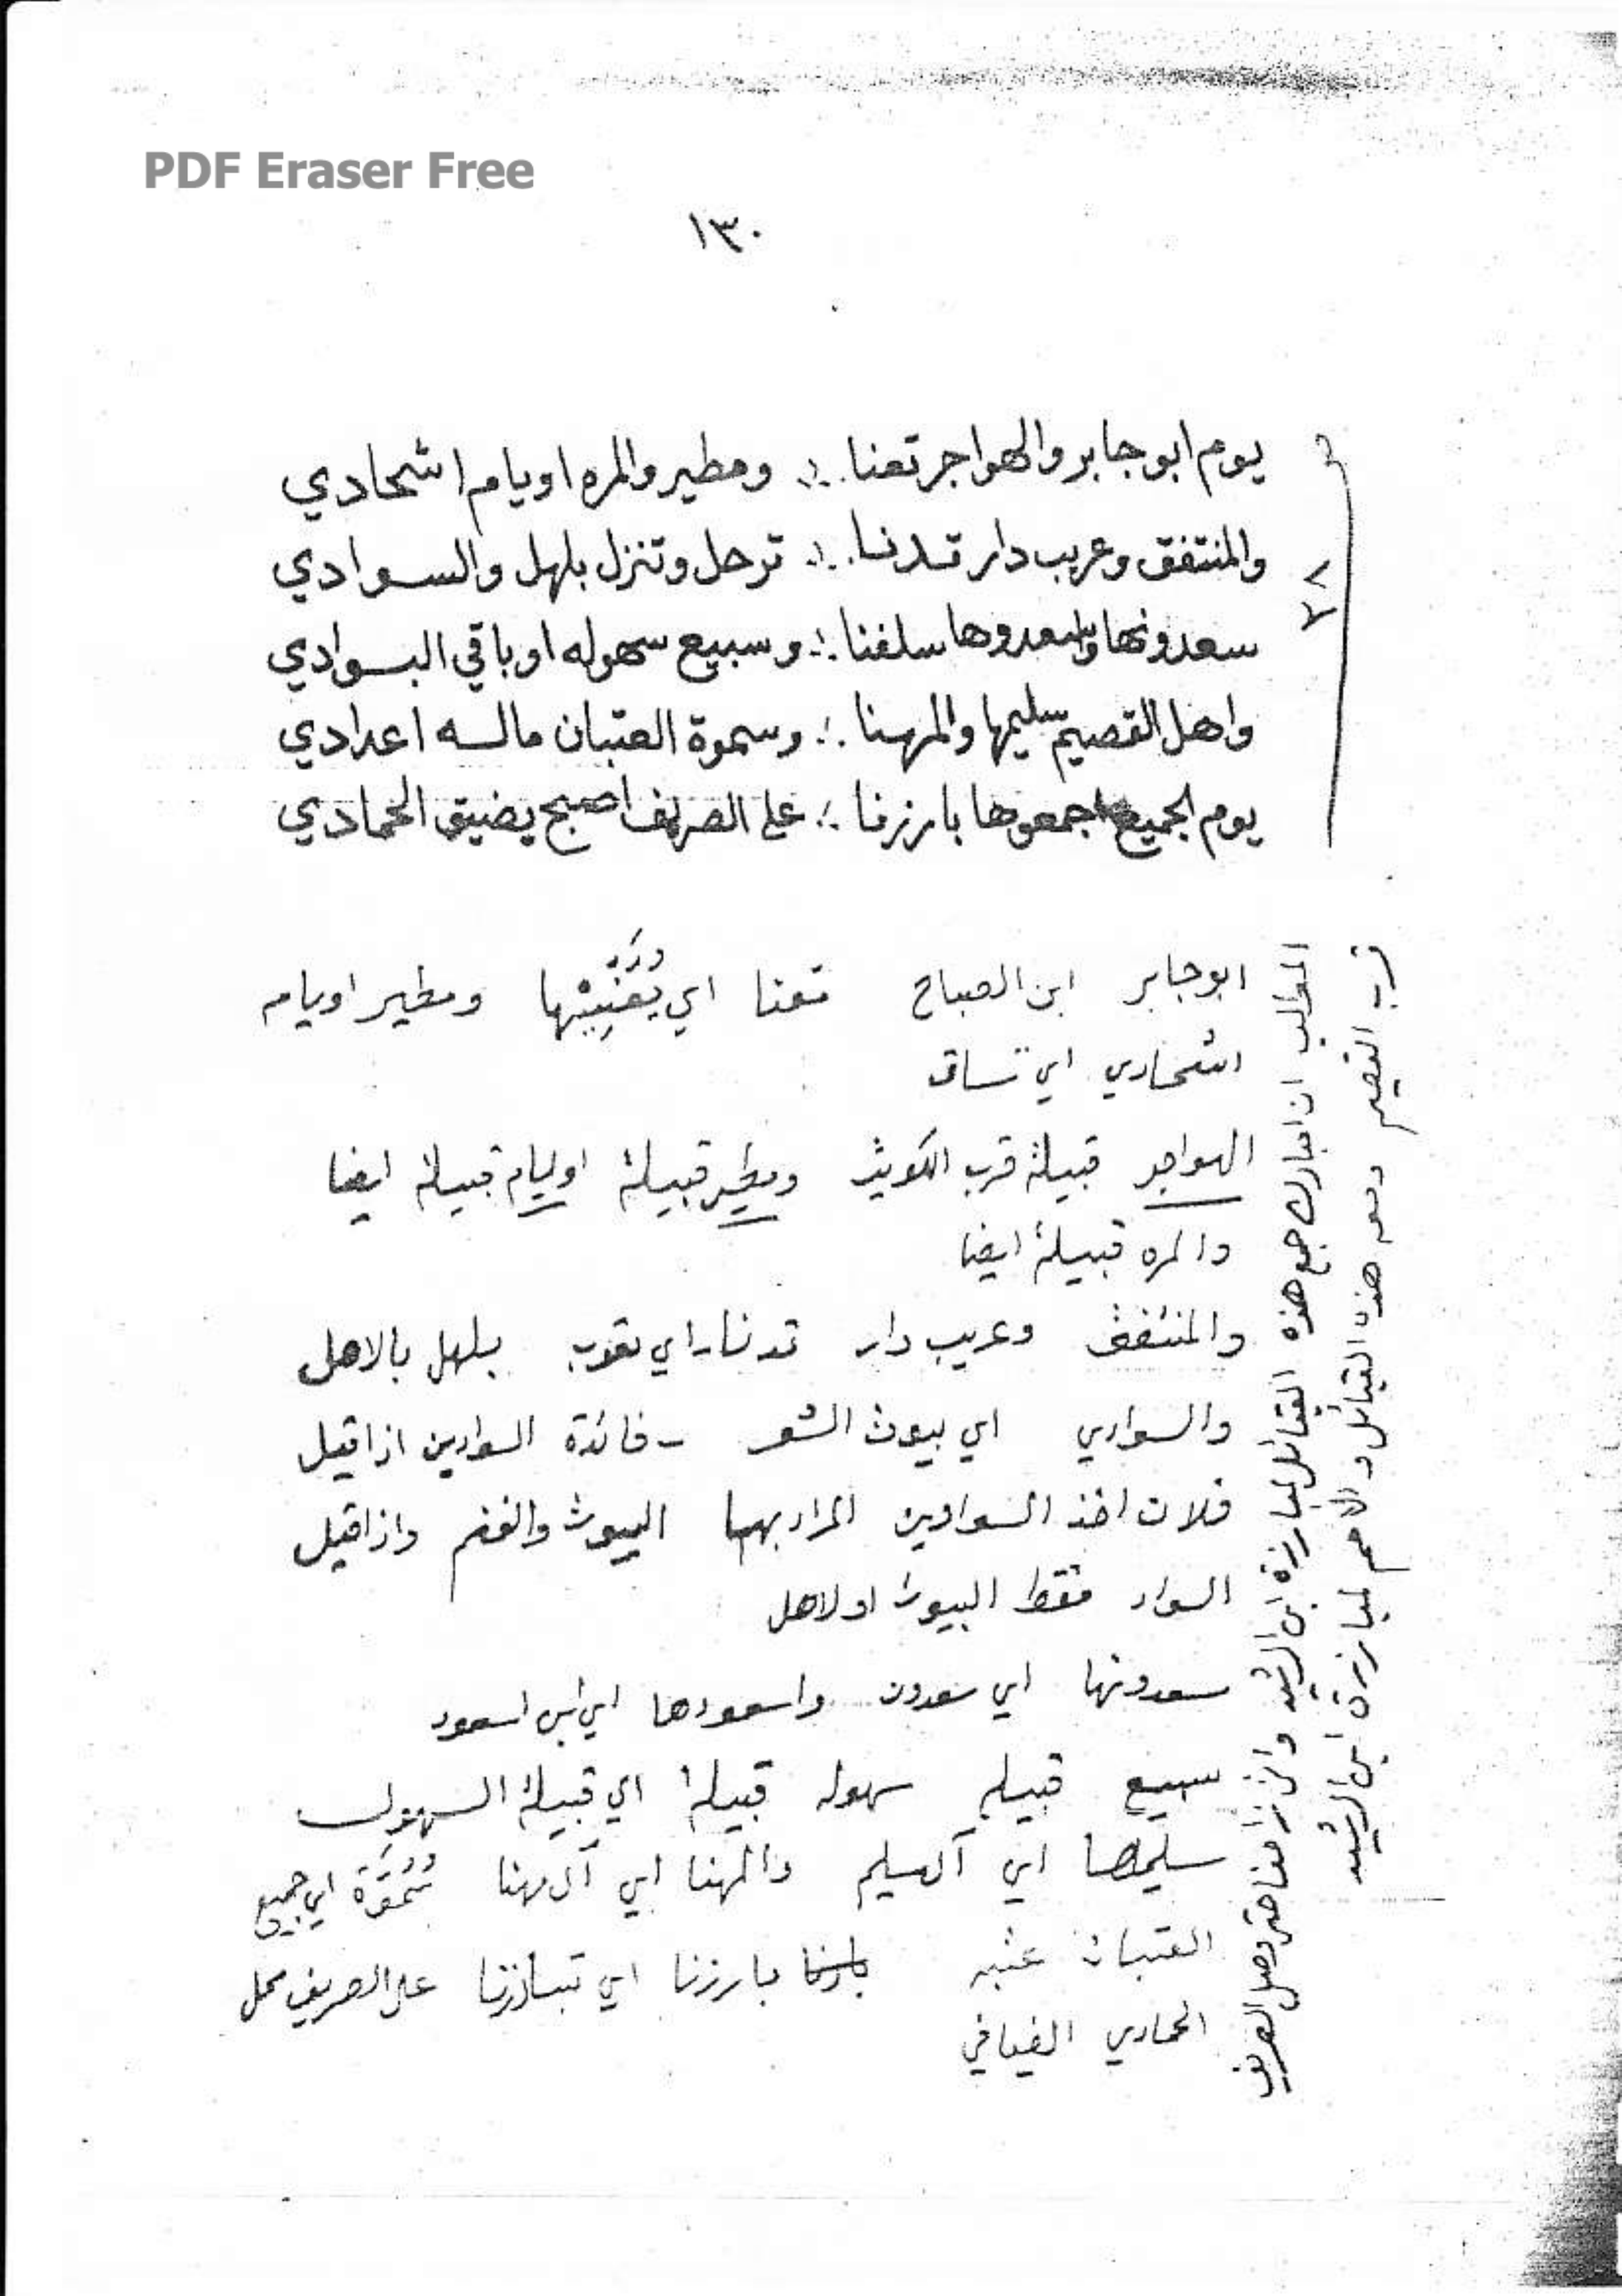 PDF Eraser Free
١٣٠
يوم ابو جابر والهواجر تعنا ∴ ومطير والمره اويام اشحادي
والمنتفق وعريب دار تدنا ∴ ترحل وتنزل بلهل والسوادي
سعدونها واسعدوها سلفنا ∴ وسبيع سهوله اوباقي البوادي
واهل القصيم سليمها والمهنا ∴ وسموة العتبان ماله اعدادي
يوم الجميع اجمعوها بارزنا ∴ على الصريف اصبح يضيق الحمادي
٧٨
ابو جابر ابن الصباح تعنا اي ومطير اويام
اشحادي اي تساق
الهواجر قبيلة قرب الكويت ومطير قبيلة اويام قبيلة ايضا
والمره قبيلة ايضا
والمنتفق وعريب دار تدنا اي تقرب بلهل بالاهل
والسوادي اي بيوت الشعر - فائدة السوادين اذا قيل
فلان اخذ السوادين المراد بهما البيوت والغنم واذا قيل
السواد فقط البيوت اولاهل
سعدونها اي سعدون واسعودها اي ابن اسعود
سبيع قبيله سهوله قبيلة اي قبيلة السهول
سليمها اي آل سليم والمهنا اي آل مهنا سموة اي جميع
العتبان عتبه بارزنا اي تبارزنا على الصريف محل
الحمادي الفيافي
ان امبارك جمع هذه القبائل لمبارزة ابن الرشيد حتى وصل الصريف
قرب القصيم ومعه هذه القبائل لمبارزة ابن الرشيد